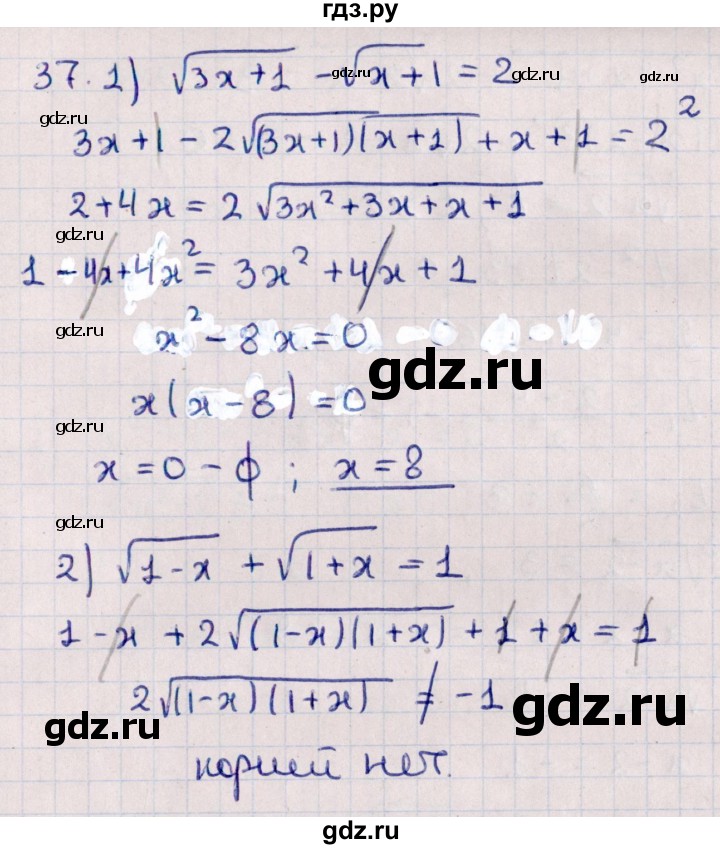 гдз.ру
37. 1) √(3x+1) - √(x+1) = 2
gdz.ru gdz.ru gdz.ru
gdz.ru
3x+1 - 2√((3x+1)(x+1)) + x + 1 = 2²
2+4x = 2√(3x²+3x+x+1)
gdz.ru
1 - 4x + 4x² = 3x² + 4x + 1
gdz.ru
x² - 8x = 0
gdz.ru
x(x-8) = 0
gdz.ru
x = 0 - ф ; x = 8
gdz.ru
2) √(1-x) + √(1+x) = 1
1 - x + 2√((1-x)(1+x)) + 1 + x = 1
2√((1-x)(1+x)) ≠ -1
gdz.ru gdz.ru
корней нет.
gdz.ru
gdz.ru